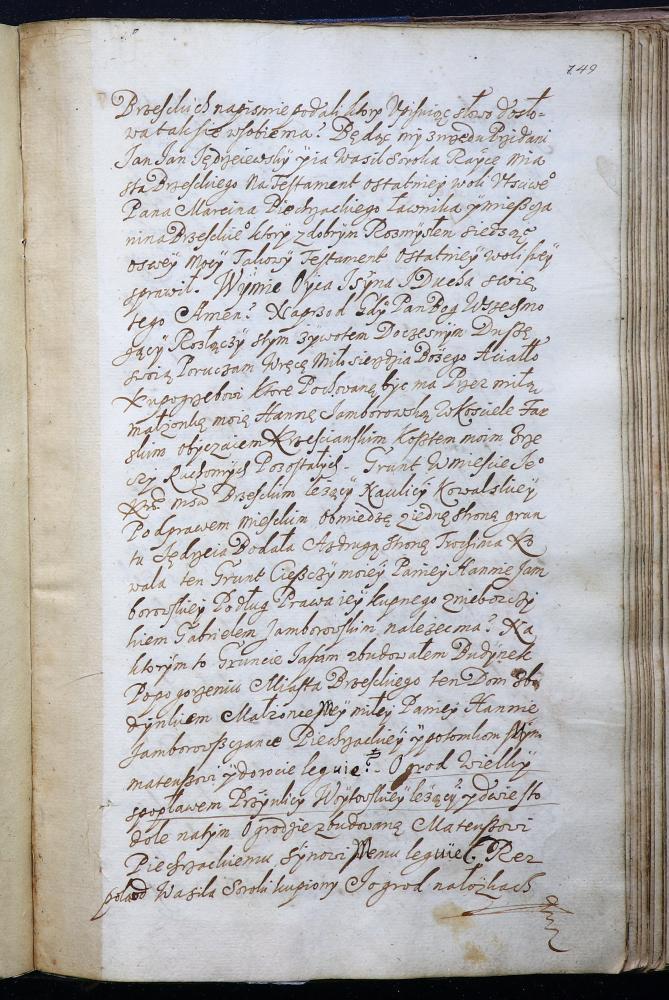 749
Brzeskich na pismie podali ktory Vpisuiąc słowo dosło=
wa tak się w sobie ma? Będąc my z Vrzędu Przidani
Jan Jan Jędrzeiewsky y ia Wasil Soroka Rayce Mia
sta Brzeskiego Na Testament ostatniey woli Vtsciwe°
Pana Marcina Piechzackiego Ławnika y miesscza
nina Brzeskie° ktory z dobrym Rozmysłem siedząc
o swey Mocy Takowy Testament Ostatniey Woli swey
sprawił. W Jmie Oyca J Syna J Ducha Swię
tego Amen? Naprzod Gdy Pan Bog Wszechmo
gący Rosłączy z tym zywotem Doczesnym Duszę
swoią Poruczam W ręce Miłosierdzia Bożego A ciało
ku pogrzebowi ktore Pochowane być ma Przez miłą
małzonkę moią Hannę Jamborowską W kosciele Far
skim obyczaiem Krzescianskim Kosztem moim z rze
czy Ruchomych Pozostałych. Grunt W miescie Je°
Kr msci Brzeskim leżący Na ulicy Kowalskiey
Pod prawem mieskim obmiedzę z iedną stronę grun
tu Jędrzeia Dodała A z drugą stronę Trochima
wala ten Grunt Cieszczy moiey Paniey Hannie Jam
borowskiey Podług Prawa iey kupnego z nieboszczy
kiem Gabrielem Jamborowskim nalezec ma? Na
ktorym to Gruncie Ja sam zbudowałem Budynek
Po pogorzeniu Miasta Brzeskiego ten Dom z bu
dynkiem Małzonce Mey miłey Paniey Hannie
Jamborowszczance Piechzackiey y potomkom Mym
mateuszowi y dorocie leguie? Ogrod Wielky
s popławem Przy ulicy Woytowskiey leżący y dwie sto
dole na tym Ogrodzie zbudowaną Mateuszowi
Piechzackiemu Synowi Memu leguie. Rez
pola od Wasila Soroki kupiony J ogrod na łozkach